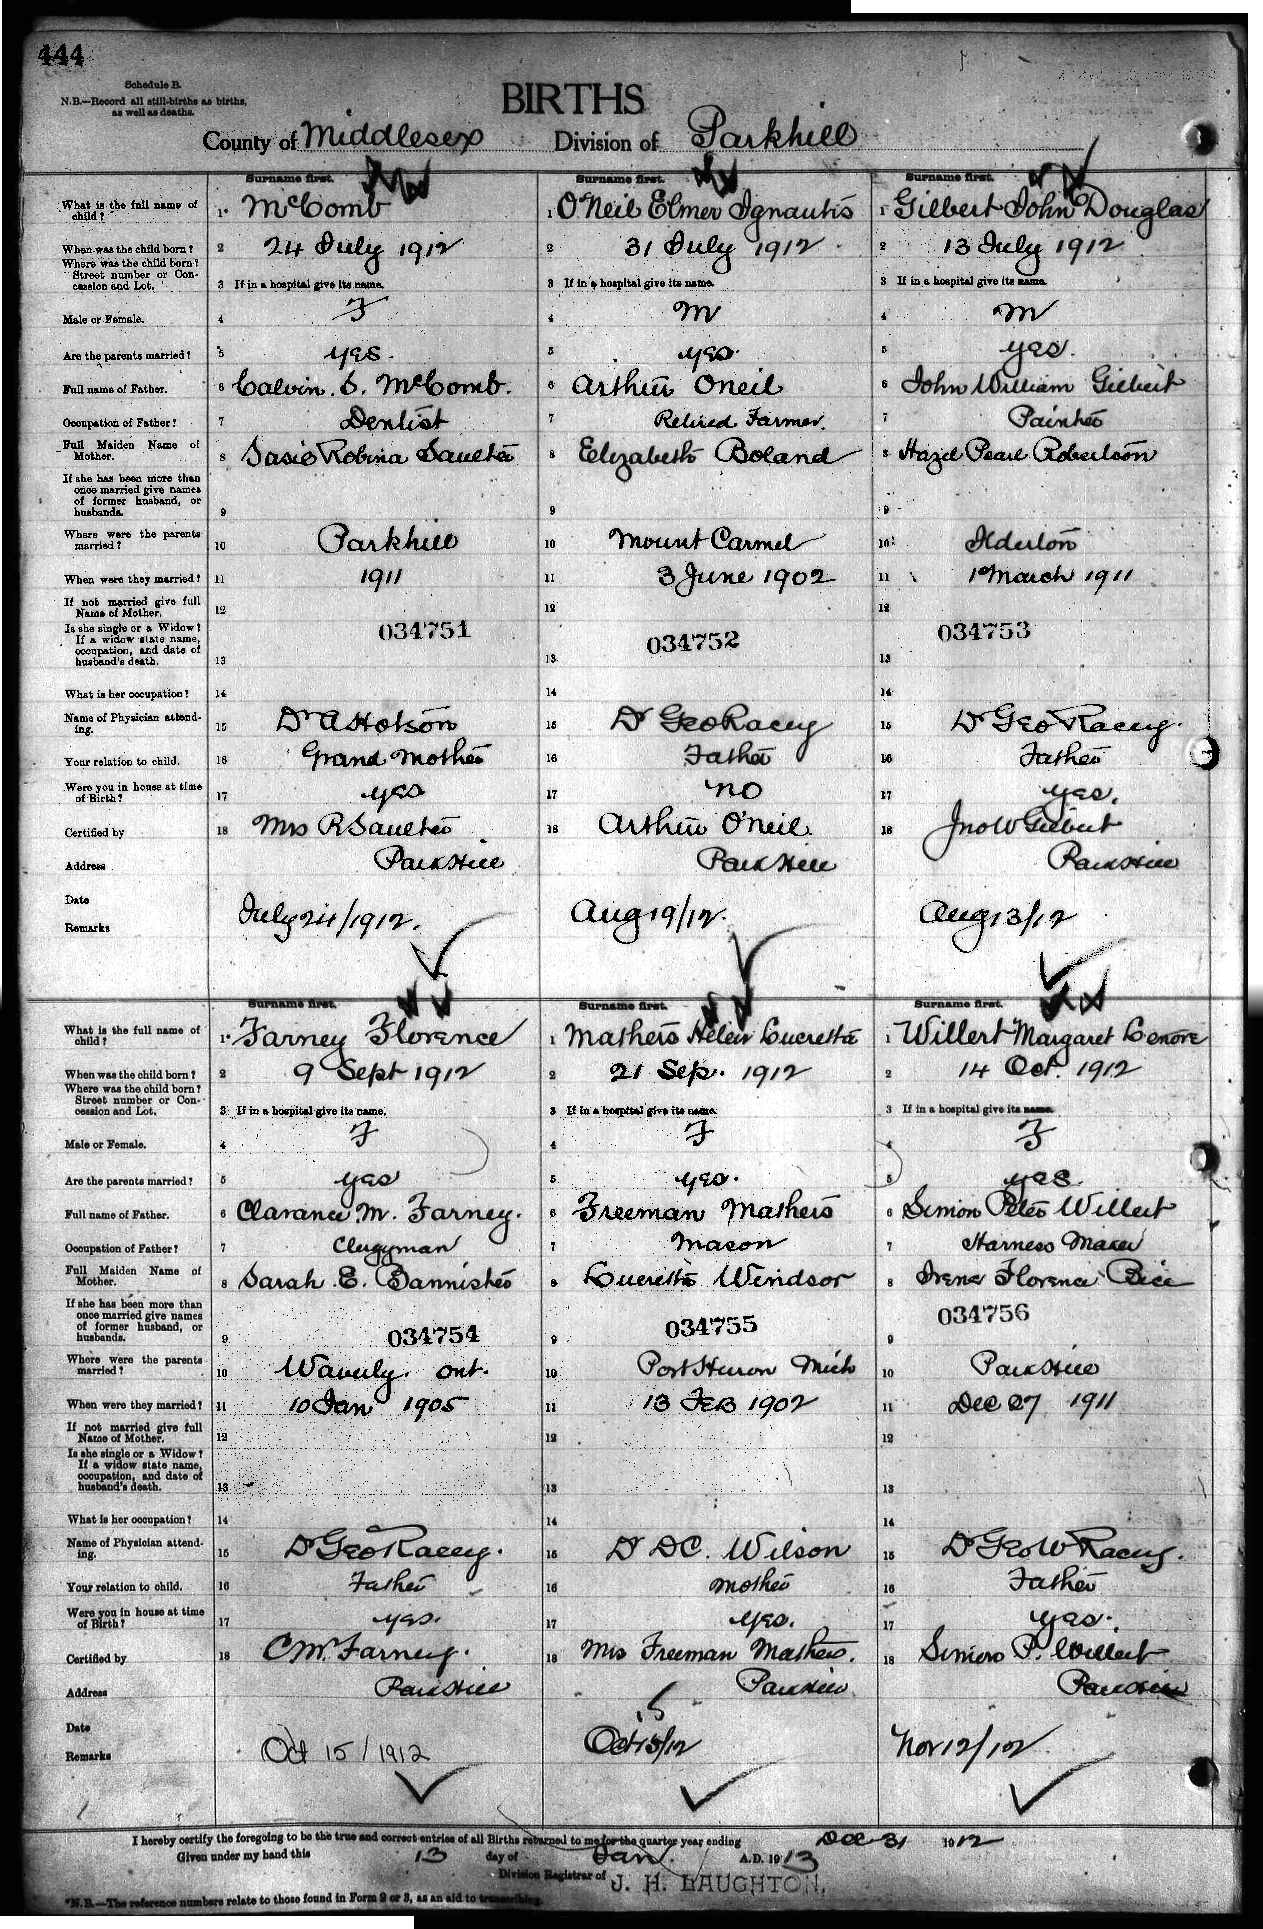 444
Schedule B.
N.B.—Record all still-births as births,
as well as deaths.
BIRTHS
County of Middlesex Division of Parkhill
Surname first. Surname first. Surname first.
What is the full name of child? 1 McComb 1 O'Neil Elmer Ignautis 1 Gilbert John Douglas
When was the child born? 2 24 July 1912 2 31 July 1912 2 13 July 1912
Where was the child born? Street number or Concession and Lot. 3 If in a hospital give its name. 3 If in a hospital give its name. 3 If in a hospital give its name.
Male or Female. 4 F 4 M 4 M
Are the parents married? 5 yes. 5 yes. 5 yes.
Full name of Father. 6 Calvin. S. McComb. 6 Arthur Oneil 6 John William Gilbert
Occupation of Father? 7 Dentist 7 Retired Farmer. 7 Painter
Full Maiden Name of Mother. 8 Robina Saulter 8 Elizabeth Boland 8 Hazel Pearl Robertson
If she has been more than once married give names of former husband, or husbands. 9 9 9
Where were the parents married? 10 Parkhill 10 Mount Carmel 10 Ilderton
When were they married? 11 1911 11 3 June 1902 11 1 March 1911
If not married give full Name of Mother. 12 12 12
Is she single or a Widow? If a widow state name, occupation, and date of husband's death. 13 034751 13 034752 13 034753
What is her occupation? 14 14 14
Name of Physician attending. 15 Dr A Hotson 15 Dr Geo Racey 15 Dr Geo Racey.
Your relation to child. 16 Grand Mother 16 Father 16 Father
Were you in house at time of Birth? 17 yes 17 no 17 yes.
Certified by 18 Mrs R Saulter 18 Arthur O'neil. 18 Jno W Gilbert
Address Parkhill Parkhill Parkhill
Date
Remarks July 24/1912. Aug 19/12. Aug 13/12
Surname first. Surname first. Surname first.
What is the full name of child? 1 Farney Florence 1 Mathers Helen Lucretta 1 Willert Margaret Lenore
When was the child born? 2 9 Sept 1912 2 21 Sep. 1912 2 14 Oct. 1912
Where was the child born? Street number or Concession and Lot. 3 If in a hospital give its name. 3 If in a hospital give its name. 3 If in a hospital give its name.
Male or Female. 4 F 4 F 4 F
Are the parents married? 5 yes 5 yes. 5 yes.
Full name of Father. 6 Clarance. M. Farney. 6 Freeman Mathers 6 Simon Peter Willert
Occupation of Father? 7 Clergyman 7 Mason 7 Harness Maker
Full Maiden Name of Mother. 8 Sarah. E. Bannister 8 Lucretta Windsor 8 Irene Florence Bice
If she has been more than once married give names of former husband, or husbands. 9 034754 9 034755 9 034756
Where were the parents married? 10 Waverly. Ont. 10 Port Huron Mich 10 Parkhill
When were they married? 11 10 Jan 1905 11 13 Feb 1902 11 Dec 27 1911
If not married give full Name of Mother. 12 12 12
Is she single or a Widow? If a widow state name, occupation, and date of husband's death. 13 13 13
What is her occupation? 14 14 14
Name of Physician attending. 15 Dr Geo Racey. 15 Dr DC. Wilson 15 Dr Geo W Racey.
Your relation to child. 16 Father 16 Mother 16 Father
Were you in house at time of Birth? 17 yes. 17 yes. 17 yes.
Certified by 18 C M. Farney. 18 Mrs Freeman Mathers. 18 Simon P. Willert
Address Parkhill Parkhill Parkhill
Date
Remarks Oct 15/1912 Oct 15/12 Nov 12/12
I hereby certify the foregoing to be the true and correct entries of all Births returned to me for the quarter year ending Dec 31 1912
Given under my hand this 13 day of Jan. A.D. 1913
Division Registrar of J. H. LAUGHTON.
*N.B.—The reference numbers relate to those found in Form 2 or 3, as an aid to transcribing.